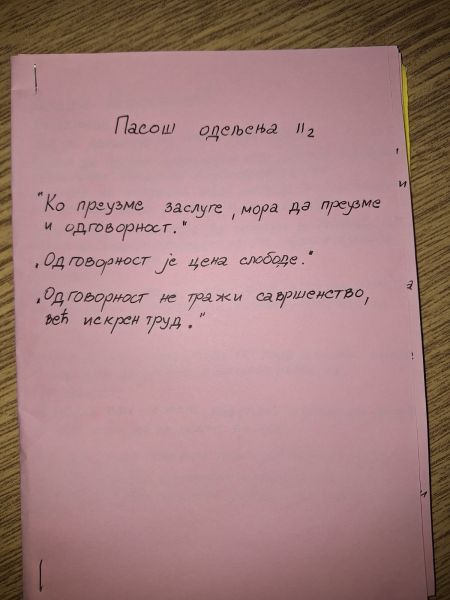 Пасош одељења II2
"Ко преузме заслуге, мора да преузме
и одговорност."
„Одговорност је цена слободе."
„Одговорност не тражи савршенство,
већ искрен труд."